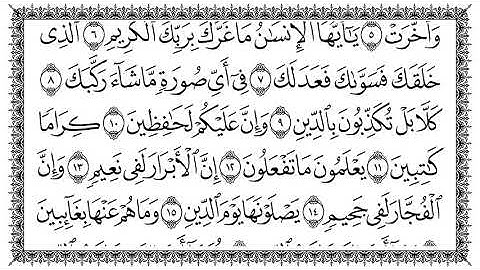 وَأَخَّرَتْ ۝٥ يَـٰٓأَيُّهَا ٱلْإِنسَـٰنُ مَا غَرَّكَ بِرَبِّكَ ٱلْكَرِيمِ ۝٦ ٱلَّذِى
خَلَقَكَ فَسَوَّىٰكَ فَعَدَلَكَ ۝٧ فِىٓ أَىِّ صُورَةٍ مَّا شَآءَ رَكَّبَكَ ۝٨
كَلَّا بَلْ تُكَذِّبُونَ بِٱلدِّينِ ۝٩ وَإِنَّ عَلَيْكُمْ لَحَـٰفِظِينَ ۝١٠ كِرَامًا
كَـٰتِبِينَ ۝١١ يَعْلَمُونَ مَا تَفْعَلُونَ ۝١٢ إِنَّ ٱلْأَبْرَارَ لَفِى نَعِيمٍ ۝١٣ وَإِنَّ
ٱلْفُجَّارَ لَفِى جَحِيمٍ ۝١٤ يَصْلَوْنَهَا يَوْمَ ٱلدِّينِ ۝١٥ وَمَا هُمْ عَنْهَا بِغَآئِبِينَ